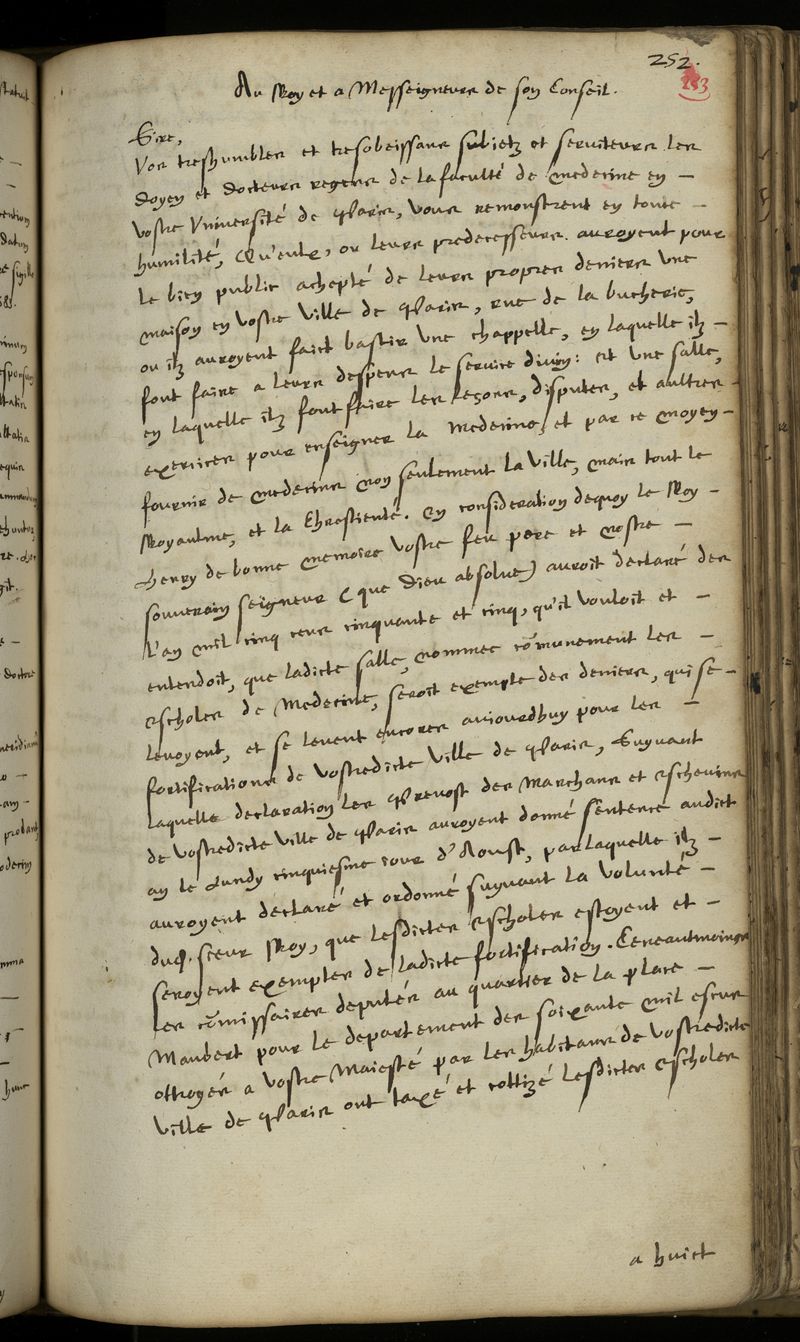 252.
253
Au Roy et a Messeigneurs de son Conseil.
Sire,
Vos treshumbles et tresobeissans subietz et serviteurs les
Doyen et docteurs regens de la faculté de medecine en —
vostre Université de Paris, vous remonstrent en toute —
humilité, Qu'eulx, ou leurs predecesseurs auroyent pour
le bien public achepté de leurs propres deniers une
maison en vostre ville de Paris, rue de la bucherie,
ou ilz auroyent faict bastir une chappelle, en laquelle ilz —
font faire a leurs despens le service divin: et une salle,
en laquelle ilz font faire les leçons, disputes, et aultres —
exercices pour enseigner la Medecine, et par ce moyen —
fournir de medecins non seulement la ville, mais tout le
Royaulme, et la Chrestienté. En consideration dequoy le Roy —
Henry de bonne memoire vostre feu pere et nostre —
souverain seigneur (que Dieu absolve) auroit declaré des
l'an mil cinq cens cinquante et cinq, qu'il vouloit et —
entendoit, que ladicte salle, nommee cōmunement les —
escholes de Medecine, seroit exempte des deniers, qui se —
levoyent, et se levent encores auiourdhuy pour les —
fortifications de vostredicte ville de Paris, Suyvant
laquelle declaration les Prevost des Marchans et Eschevins
de vostredicte ville de Paris auroyent donné sentence audict
an le Lundy cinquiesme iour d'Aoust, par laquelle ilz —
auroyent declaré et ordonné suyvant la volunté —
dud. sieur Roy, que lesdictes escholes estoyent et —
seroyent exemptes de ladicte fortification. Ceneantmoings
les cōmissaires deputés au quartier de la place —
Maubert pour le departement des soixante mil escus
ottroyés a vostre Maiesté par les habitans de vostredicte
ville de Paris ont taxé et cottizé lesdictes escholes
a huict